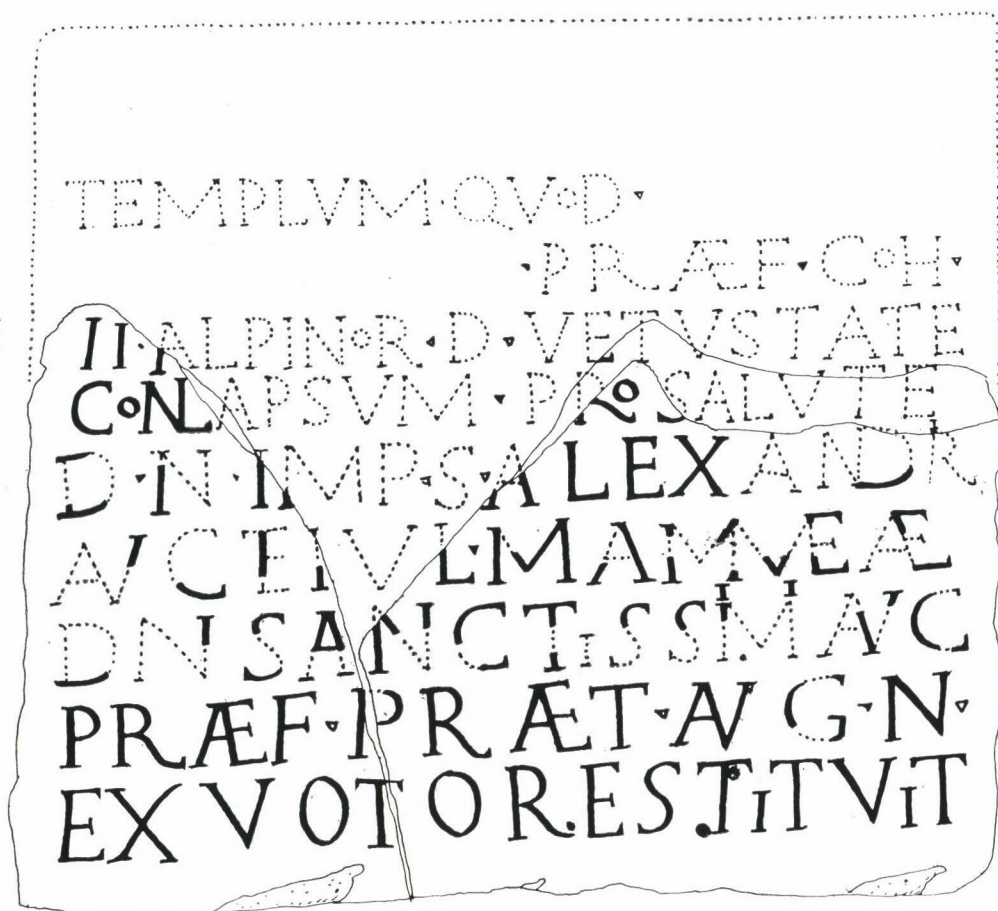 TEMPLVM·QVOD·
·PRÆF·COH·
II·ALPINOR·D·VETVSTATE
CONLAPSVM·PRO SALVTE
D·N·IMP·S·ALEXANDR
AVG ET IVL·MAMMEÆ
DN SANCTISSIM AVG
PRÆF·PRÆT·AVG·N·
EX VOTO RESTITVIT